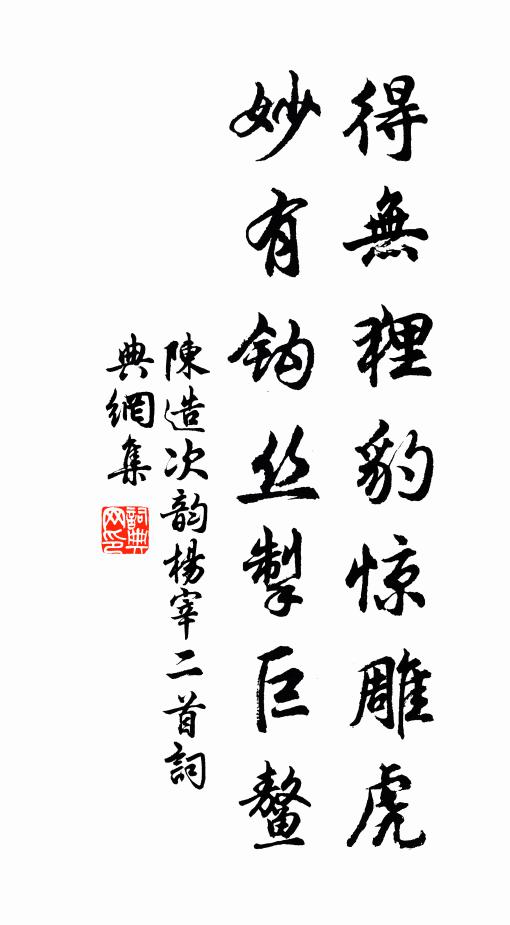 得無狸豹惊雕虎
妙有鈎丝掣巨鰲
陳造次韵楊宰二首詞
典網集
詞典
网印